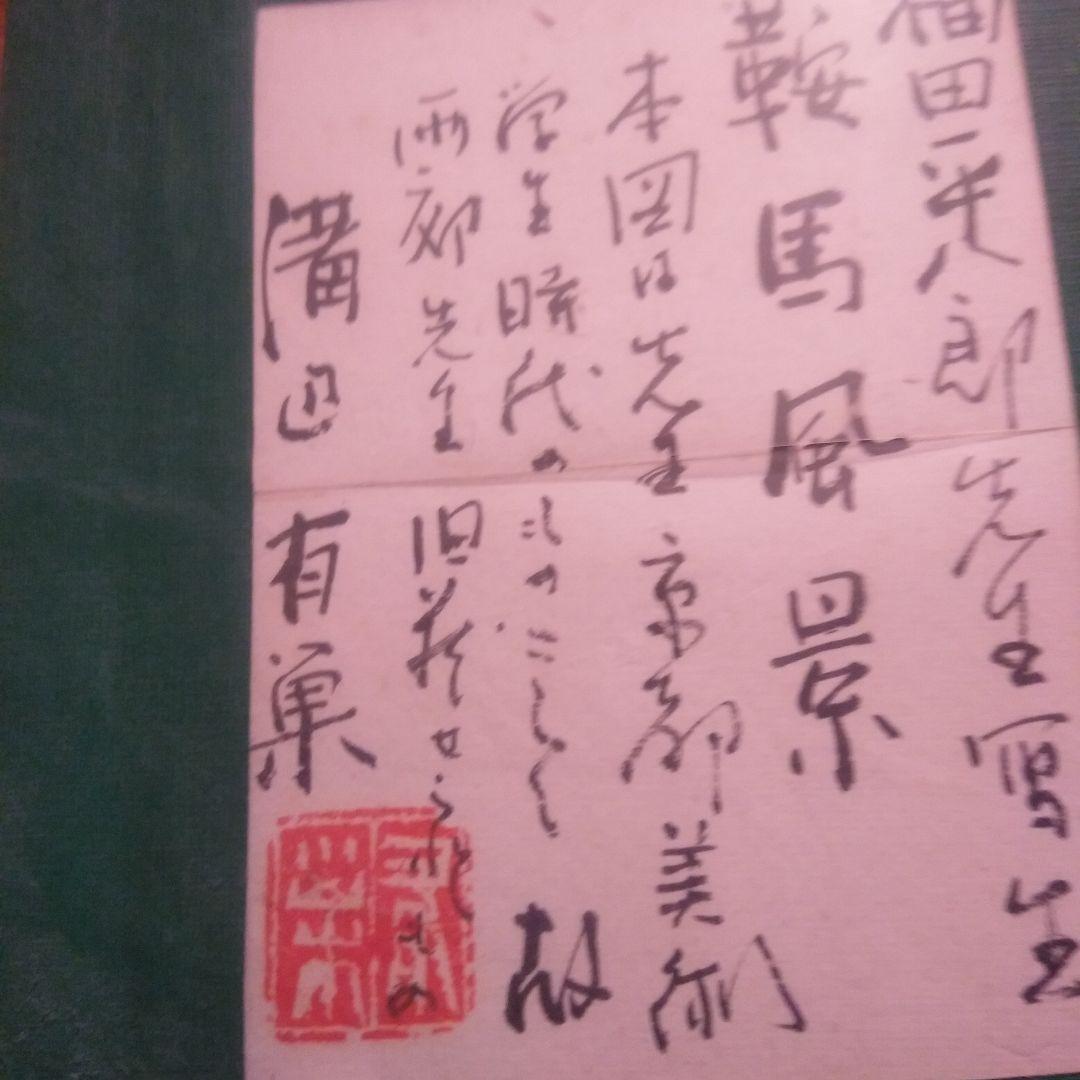 福田平八郎先生寫生
鞍馬風景
本図は先生京都美術
学生時代のものにして 故
先生旧蔵せられしもの
溝辺有巣